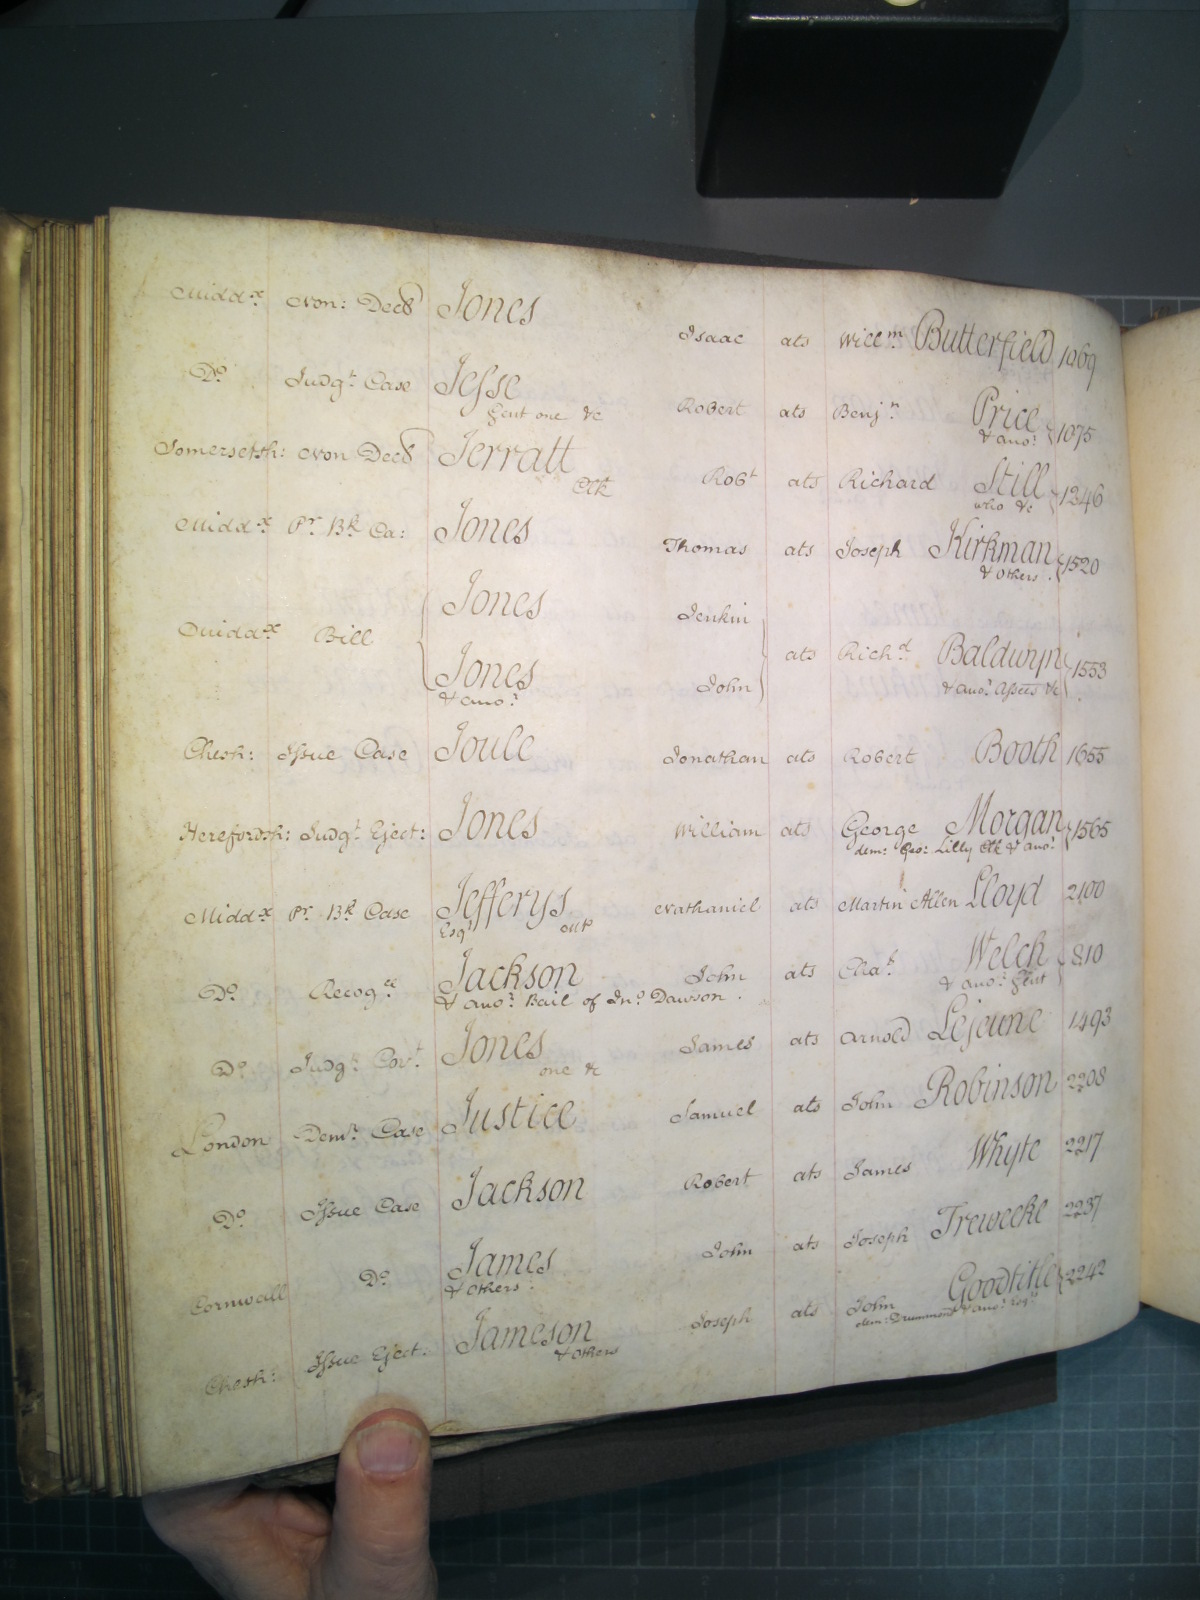 Midd.x Non: Decd Jones Isaac ats Will.m Butterfield 1069
Do. Judgt. Case Jesse Robert ats Benj.n Price 1075
Gent one &c & anor.
Somersetsh: Non Decd Jerratt Robt ats Richard Still 1246
Clk who &c
Midd.x Pr. Bk. Ca: Jones Thomas ats Joseph Kirkman 1520
& Others
Jones Jenkin
Midd.x Bill ats Rich.d Baldwyn 1553
Jones John
& anor. & anor. Assees &c
Chesh: Issue Case Joule Jonathan ats Robert Booth 1655
Herefordsh: Judgt. Eject: Jones William ats George Morgan 1565
dem: Geo: Lilly Clk & anor.
Midd.x Pr. Bk. Case Jefferys Nathaniel ats Martin Allen Lloyd 2100
Esqr.
Do. Recog.ce Jackson John ats Chas. Welch 810
& anor. Bail of Jno. Dawson & anor. Gent
Do. Judgt. Covt. Jones James ats Arnold Lejeune 1493
one &c
London Demr. Case Justice Samuel ats John Robinson 2208
Do. Issue Case Jackson Robert ats James Whyte 2217
Cornwall Do. James John ats Joseph Treweeke 2237
& Others
Chesh: Issue Eject: Jameson Joseph ats John Goodtitle 2242
& Others dem: Drummond & anor. Esqrs.